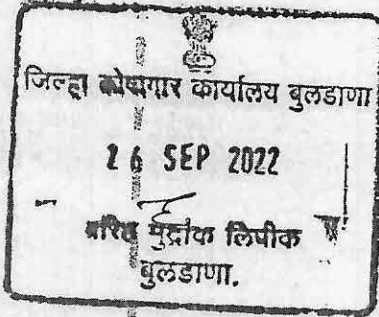 जिल्हा कोषागार कार्यालय बुलडाणा
26 SEP 2022
वरिष्ठ मुद्रांक लिपीक
बुलडाणा.